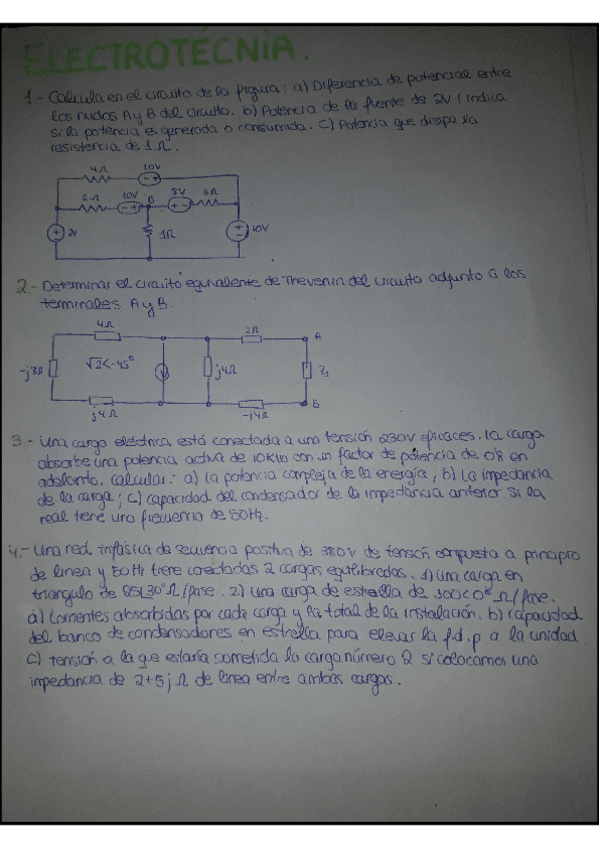 ELECTROTÉCNIA.
1- Calcula en el circuito de la figura: a) Diferencia de potencial entre
los nudos A y B del circuito. b) Potencia de la fuente de 2V (indica
si la potencia es generada o consumida. c) Potencia que disipa la
resistencia de 1Ω.
4Ω 10V
2Ω 10V B 3V
2V 1Ω 10V
2.- Determinar el circuito equivalente de Thevenin del circuito adjunto a los
terminales A y B.
4Ω 2Ω A
√2<-45° j4Ω
j4Ω -j4Ω B
3.- Una carga eléctrica está conectada a una tensión 230V eficaces. La carga
absorbe una potencia activa de 10KW con un factor de potencia de 0'8 en
adelanto. Calcular: a) La potencia compleja de la energía; b) La impedancia
de la carga; c) capacidad del condensador de la impedancia anterior si la
real tiene una frecuencia de 50Hz.
4.- Una red trifásica de secuencia positiva de 380V de tensión compuesta a principio
de linea y 50Hz tiene conectadas 2 cargas equilibradas. 1) una carga en
triangulo de Ω/fase. 2) una carga de estrella de 300<0° Ω/fase.
a) Corrientes absorbidas por cada carga y la total de la instalación. b) capacidad
del banco de condensadores en estrella para elevar la f.d.p a la unidad.
c) tensión a la que estaría sometida la carga número 2 si colocamos una
impedancia de 2+5j Ω de linea entre ambas cargas.